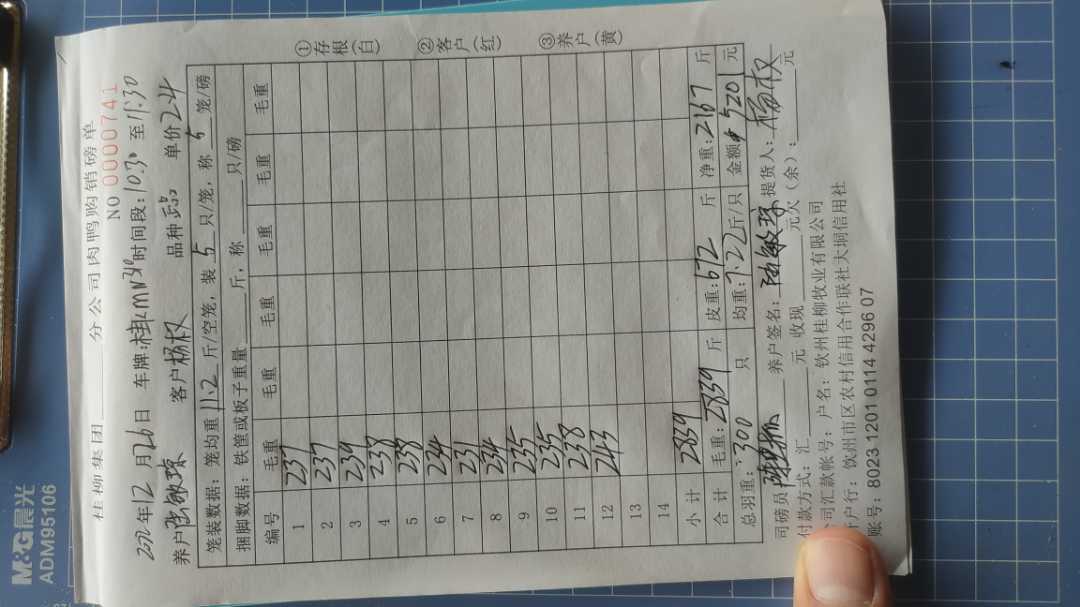 桂柳集团 分公司肉鸭购销磅单
NO 0000741
月26日 车牌: 时间段:10:30 至11:30
养户 客户杨权 品种 单价2.4
笼装数据: 笼均重11.2斤/空笼, 装5只/笼, 称5笼/磅
捆脚数据: 铁筐或板子重量 斤, 称 只/磅
编号 毛重 毛重 毛重 毛重 毛重 毛重
1 237
2 237
3 239
4 237
5 238
6 234
7 231
8 234
9 235
10 235
11 238
12 243
13
14
小计 2839
合计 毛重:2839斤 皮重:672斤 净重:2167斤
总羽重:300只 均重:7.22斤/只 金额:5201元
司磅员 养户签名: 提货人:杨权
付款方式: 汇 元 收现 元欠(余): 元
司汇款帐号: 户名: 钦州桂柳牧业有限公司
开户行: 饮州市区农村信用合作联社大垌信用社
账号: 8023 1201 0114 4296 07
①存根(白)
②客户(红)
③养户(黄)
M&G晨光
ADM95106